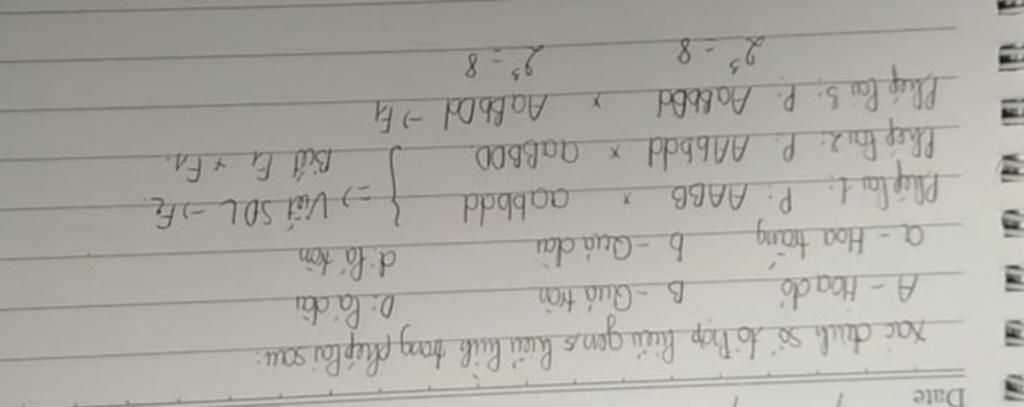 Date / /
Xác định số tổ hợp kiểu gen & kiểu hình trong phép lai sau:
A - Hoa đỏ B - Quả tròn D: lá dài
a - Hoa trắng b - Quả dài d: lá tròn
Phép lai 1: P: AABB × aabbdd } => Viết SĐL → F2
Phép lai 2: P: AAbbdd × aaBBDD Biết F1 × F1.
Phép lai 3: P: AaBbDd × AaBbDd → F1
2³ = 8 2³ = 8